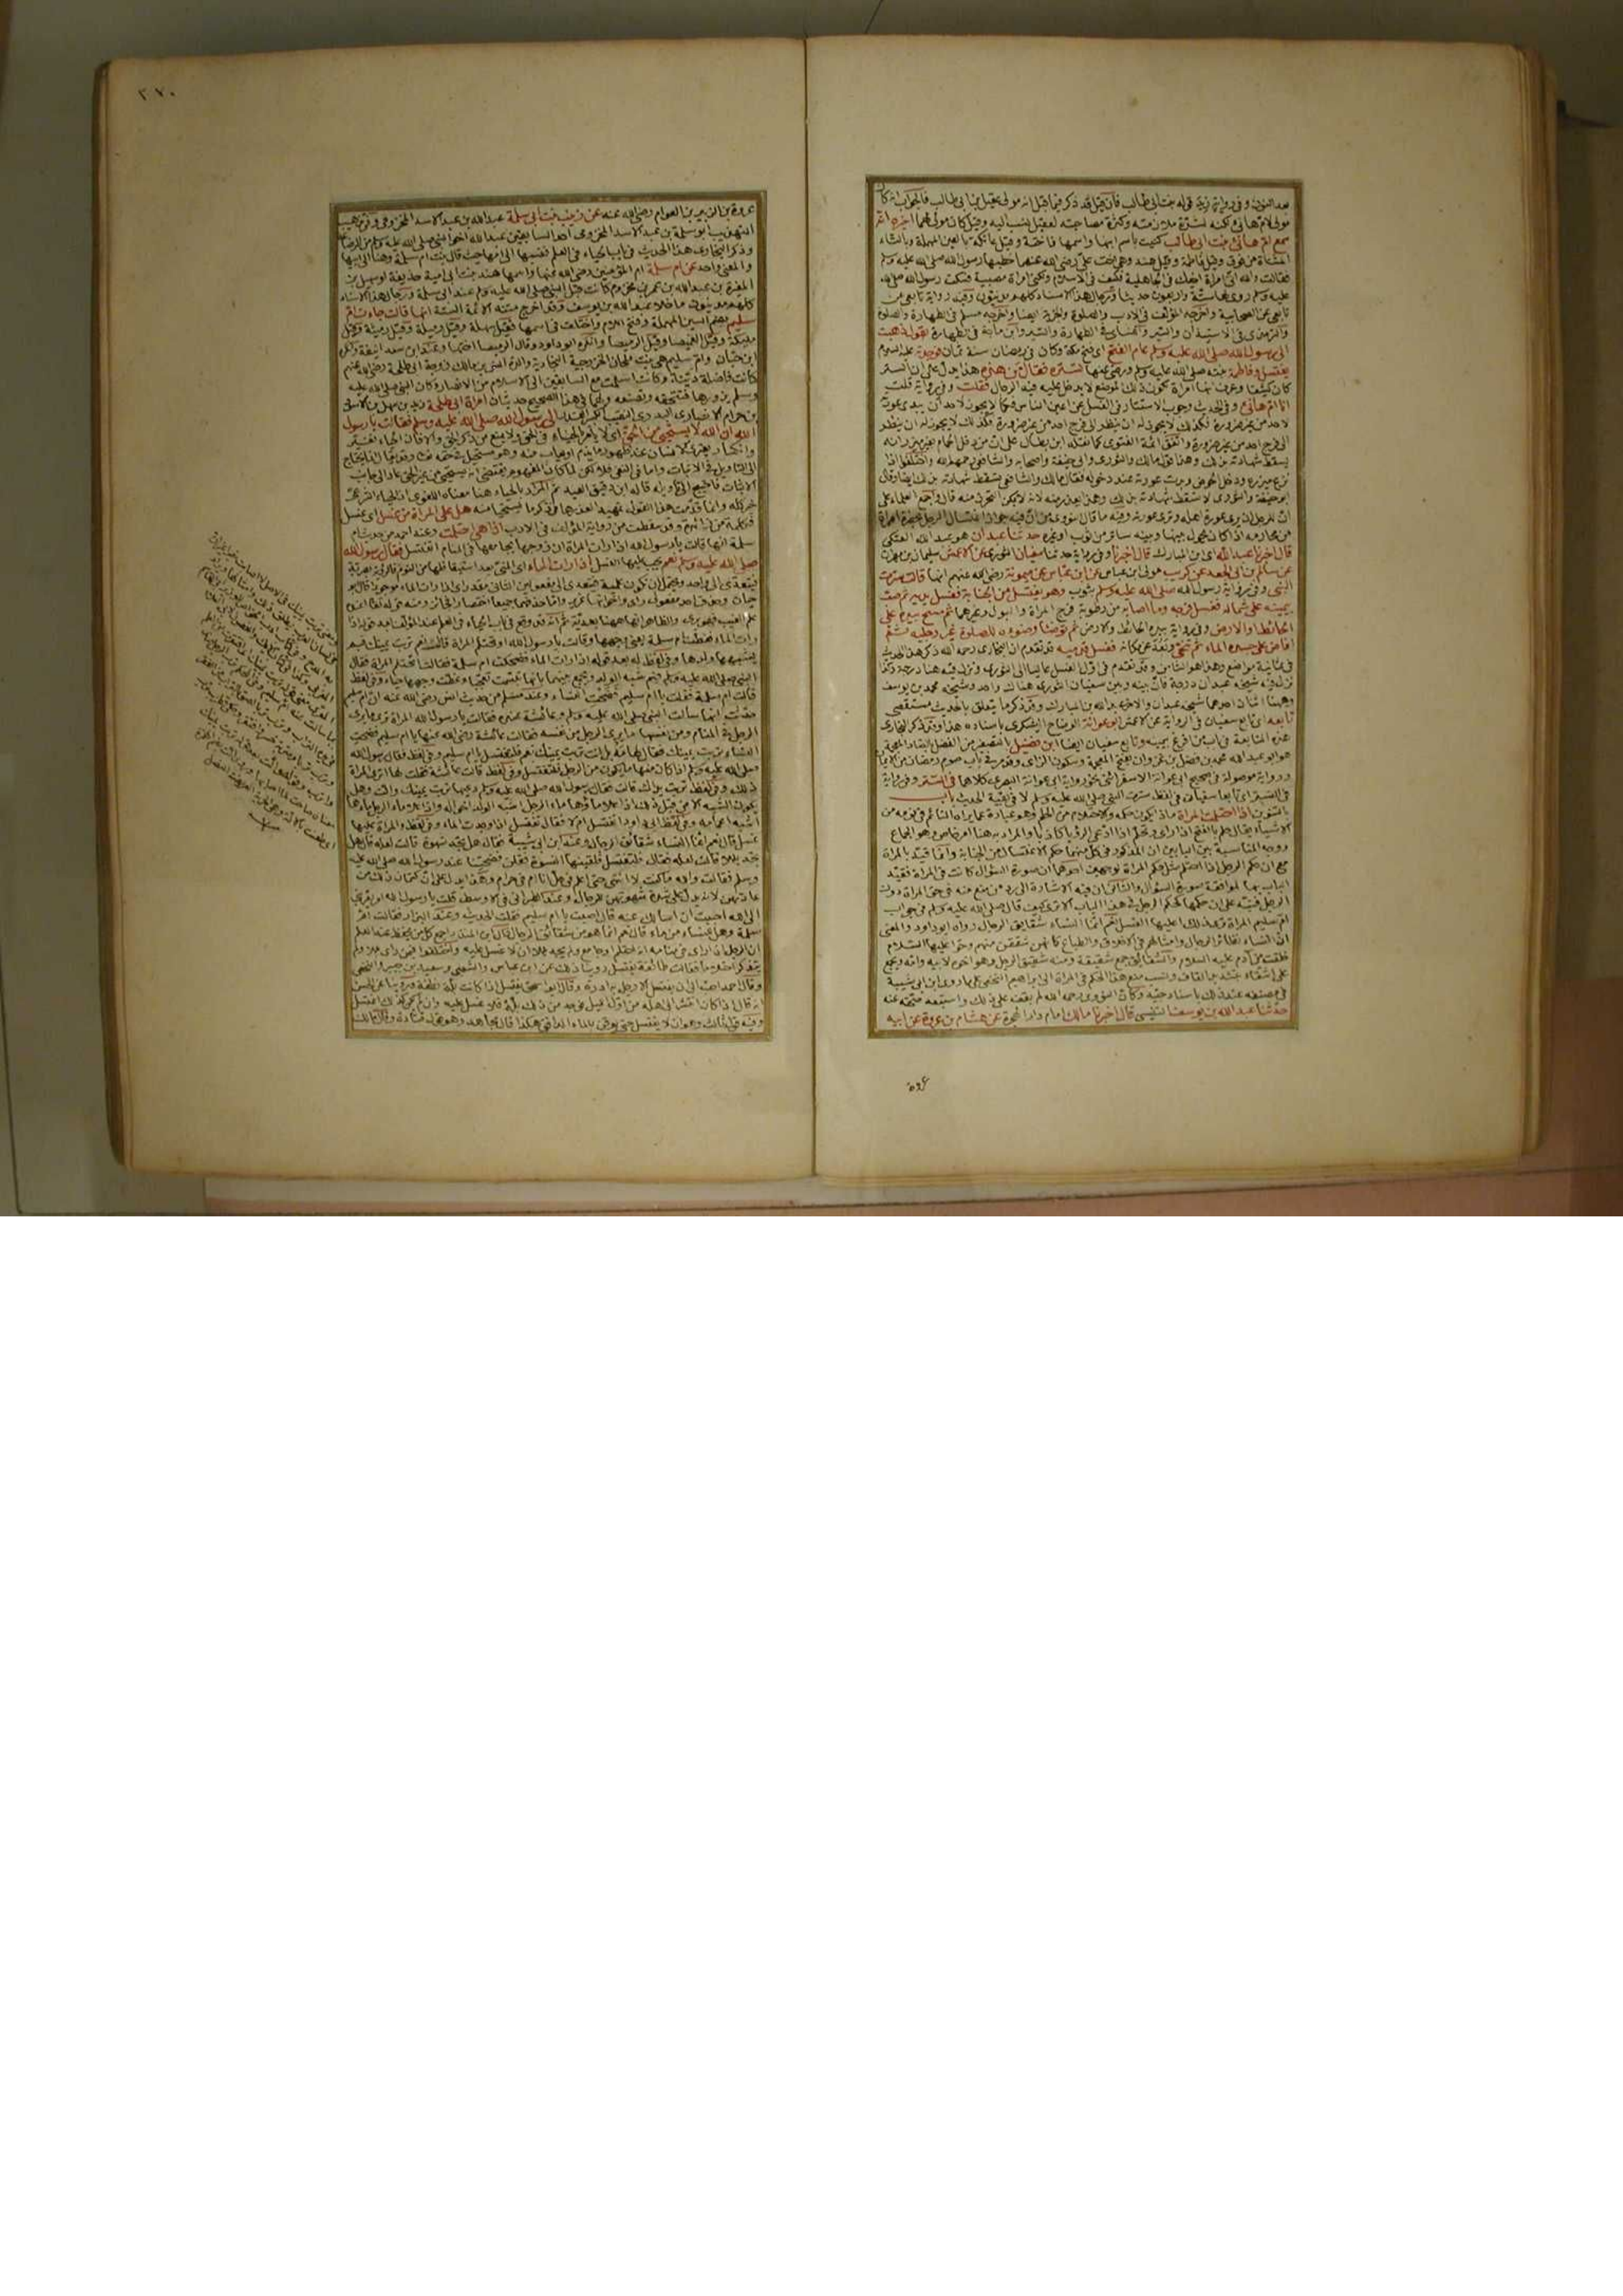 بعد النون وفى رواية زيد قوله بنت ابى طالب فان قيل قد ذكر فيما قبل انه مولى عقيل بن ابى طالب فالجواب انه كان
مولى لام هانئ ولكنه لشدة ملازمته وكثرة مصاحبته لعقيل نسب اليه وقيل كان مولى لهما اخبره انه
سمع ام هانئ بنت ابى طالب كنيت باسم ابنها واسمها فاختة وقيل عاتكة بالعين المهملة وبالتاء
المثناة من فوق وقيل فاطمة وقيل هند وهى اخت على رضى الله عنهما خطبها رسول الله صلى الله عليه وسلم
فقالت والله انى لاحبك فى الجاهلية فكيف فى الاسلام ولكنى امرأة مصبية فسكت رسول الله صلى الله
عليه وسلم روى لها ستة واربعون حديثا ورجال هذا الاسناد كلهم مدنيون وفيه رواية تابعى عن
تابعى عن الصحابية واخرجه المؤلف فى الادب والصلوة والجزية ايضا واخرجه مسلم فى الطهارة والصلوة
والترمذى فى الاستيذان والسير والنسائى فى الطهارة والسير وابن ماجة فى الطهارة تقول ذهبت
الى رسول الله صلى الله عليه وسلم عام الفتح اى فتح مكة وكان فى رمضان سنة ثمان فوجدته عليه السلام
يغتسل وفاطمة بنته صلى الله عليه وسلم ورضى عنها تستره فقال من هذه هذا يدل على ان الستر
كان كثيفا وعرف انها امرأة لكون ذلك الموضع لا يدخل عليه فيه الرجال فقلت وفى رواية قلت
انا ام هانئ وفى الحديث وجوب الاستتار فى الغسل عن اعين الناس فكما لا يجوز لاحد ان يبدى عورته
لاحد من غير ضرورة فكذلك لا يجوز له ان ينظر الى فرج احد من غير ضرورة
الى فرج احد من غير ضرورة واتفق ائمة الفتوى كما نقله ابن بطال على ان من دخل الحمام بغير مئزر انه
يسقط شهادته بذلك وهذا قول مالك والثورى وابى حنيفة واصحابه والشافعى رحمهم الله واختلفوا اذا
نزع مئزره ودخل الحوض وبدت عورته عند دخوله فقال مالك والشافعى يسقط شهادته بذلك ايضا وقال
ابو حنيفة والثورى لا تسقط شهادته بذلك وهذا يعذر منه لانه لا يمكن التحرز منه قال واجمع العلماء على
ان للرجل ان يرى عورة اهله وترى عورته وفيه ما قال النووى من ان فيه جواز اغتسال الرجل بحضرة امرأة
من محارمه اذا كان يحول بينها وبينه ساتر من ثوب او غيره حدثنا عبدان هو عبد الله العتكى
قال اخبرنا عبد الله اى ابن المبارك قال اخبرنا وفى رواية حدثنا سفيان الثورى عن الاعمش سليمان بن مهران
عن سالم بن ابى الجعد عن كريب مولى ابن عباس عن ابن عباس عن ميمونة رضى الله عنهم انها قالت سترت
النبى وفى رواية رسول الله صلى الله عليه وسلم بثوب وهو يغتسل من الجنابة فغسل يديه ثم صب
بيمينه على شماله فغسل فرجه وما اصابه من رطوبة فرج المرأة والبول وغيرهما ثم مسح بيده على
الحائط او الارض وفى رواية بيده الحائط والارض ثم توضأ وضوءه للصلوة غير رجليه ثم
افاض على جسده الماء ثم تنحى وبعد عن مكانه فغسل قدميه قد تقدم ان البخارى رحمه الله ذكر هذا الحديث
فى ثمانية مواضع وهذا هو الثامن وقد تقدم فى اول الغسل عاليا الى الثورى ونزل فيه هنا درجة وكذا
نزل فيه شيخه عبدان درجة فان بينه وبين سفيان الثورى هناك واحد وشيخه محمد بن يوسف
وههنا اثنان احدهما شيخه عبدان والاخر عبد الله بن المبارك وقد ذكر ما يتعلق بالحديث مستقصى
تابعه اى تابع سفيان فى الرواية عن الاعمش ابو عوانة الوضاح اليشكرى باسناده هذا وقد ذكر البخارى
هذه المتابعة فى باب من افرغ بيمينه وتابع سفيان ايضا ابن فضيل بالتصغير من الفضل
هو ابو عبد الله محمد بن فضيل بن غزوان بفتح المعجمة وسكون الزاى وقد مر فى باب صوم رمضان من الايمان
وروايته موصولة فى صحيح ابى عوانة الاسفرائنى نحو رواية ابى عوانة البصرى كلاهما فى الستر وفى رواية
فى التستر اى تابعا سفيان فى لفظ سترت النبى صلى الله عليه وسلم لا فى بقية الحديث باب
بالتنوين اذا احتلمت المرأة ماذا يكون حكمه والاحتلام من الحلم وهو عبارة عما يراه النائم فى نومه من
الاشياء يقال حلم بالفتح اذا رأى وتحلم اذا ادعى الرؤيا كاذبا والمراد به هنا امر خاص وهو الجماع
ووجه المناسبة بين البابين ان المذكور فى كل منهما حكم الاغتسال من الجنابة وانما قيد بالمرأة
مع ان حكم الرجل اذا احتلم مثل حكم المرأة لوجهين احدهما ان صورة السؤال كانت فى المرأة فقيد
الباب بها لموافقة صورة السؤال والثانى ان فيه الاشارة الى رد من منع منه فى حق المرأة دون
الرجل فنبه على ان حكمها كحكم الرجل فى هذا الباب الا ترى كيف قال صلى الله عليه وسلم فى جواب
ام سليم المرأة ترى ذلك اعليها الغسل نعم انما النساء شقايق الرجال رواه ابو داود والمعنى
ان النساء نظائر الرجال وامثالهم فى الاخلاق والطباع كانهن شققن منهم وحواء عليها السلام
خلقت من آدم عليه السلام والشقائق جمع شقيقة ومنه شقيق الرجل وهو اخوه لابيه وامه ويجمع
على اشقاء بتشديد القاف ونسب منع هذا الحكم فى المرأة الى ابراهيم النخعى على ما روى ابن ابى شيبة
فى مصنفه عنه ذلك باسناد جيد وكأن النووى رحمه الله لم يقف على ذلك واستبعد صحته عنه
حدثنا عبد الله بن يوسف التنيسى قال اخبرنا مالك امام دار الهجرة عن هشام بن عروة عن ابيه
عروة
٢٧٠
عروة بن الزبير بن العوام رضى الله عنه عن زينب بنت ابى سلمة عبد الله بن عبد الاسد المخزومى
وذكر البخارى هذا الحديث فى باب الحياء فى العلم فنسبها الى امها حيث قال بنت ام سلمة وهنا الى ابيها
والمعنى واحد عن ام سلمة ام المؤمنين رضى الله عنها واسمها هند بنت ابى امية حذيفة او سهيل بن
المغيرة بن عبد الله بن عمر بن مخزوم كانت قبل النبى صلى الله عليه وسلم عند ابى سلمة ورجال هذا الاسناد
كلهم مدنيون ما خلا عبد الله بن يوسف وقد اخرج متنه الائمة الستة انها قالت جاءت ام
سليم بضم السين المهملة وفتح اللام واختلف فى اسمها فقيل سهلة وقيل رميلة وقيل رميثة وقيل
مليكة وقيل الغميصا وقيل الرميصا وانكره ابو داود وقال الرميصا اختها
ابن حبان وام سليم هى بنت ملحان الخزرجية النجارية والدة انس بن مالك زوجة ابى طلحة رضى الله عنهم
كانت فاضلة دينة وكانت اسلمت مع السابقين الى الاسلام من الانصار وكان النبى صلى الله عليه
وسلم يزورها فتتحفه ولها فى هذا الصحيح حديثان امرأة ابى طلحة زيد بن سهل بن الاسود
بن حرام الانصارى البدرى النقيب الى رسول الله صلى الله عليه وسلم فقالت يا رسول
الله ان الله لا يستحيى من الحق اى لا يأمر بالحياء فى الحق ولا يمنع من ذكر الحق والا فان الحياء تغير
وانكسار يعترى الانسان عند ظهور ما يذم او يعاب منه وهو مستحيل فى حقه تعالى
الى التأويل فى الاثبات واما فى النفى فلا لكن لما كان المفهوم يقتضى انه يستحيى من غير الحق عاد الى جانب
الاثبات فاحتيج الى تأويله قاله ابن دقيق العيد ثم المراد بالحياء هنا معناه اللغوى اذ الحياء الشرعى
خير كله وانما قدمت هذا القول تمهيدا لعذرها فى ذكر ما يستحيا منه هل على المرأة من غسل اى غسل
فكلمة من زائدة وقد سقطت من رواية المؤلف فى الادب اذا هى احتلمت وعند احمد من حديث ام
سلمة انها قالت يا رسول الله اذا رأت المرأة ان زوجها يجامعها فى المنام اتغتسل فقال رسول الله
صلى الله عليه وسلم نعم يجب عليها الغسل اذا رأت الماء اى المنى بعد استيقاظها من النوم فالرؤية بصرية
فيتعدى الى واحد ويحتمل ان يكون علمية فيتعدى الى مفعولين الثانى مقدر اى اذا رأت الماء موجودا قال ابو
حيان وحذف احد مفعولى رأى واخواتها عزيز واما حذفهما جميعا اختصارا فجائز ومنه قوله تعالى اعنده
علم الغيب فهو يرى والظاهر انها ههنا بصرية ثم انه قد وقع فى باب الحياء فى العلم عند المؤلف بعد قوله اذا
رأت الماء فغطت ام سلمة يعنى وجهها وقالت يا رسول الله او تحتلم المرأة قال نعم تربت يمينك فبم
يشبهها ولدها وفى لفظ له بعد قوله اذا رأت الماء فضحكت ام سلمة فقالت اتحتلم المرأة فقال
النبى صلى الله عليه وسلم فبم شبه الولد ويجمع بينهما بانها تبسمت تعجبا وغطت وجهها حياء وفى لفظ
قالت ام سلمة فقلت يا ام سليم فضحت النساء وعند مسلم من حديث انس رضى الله عنه ان ام سليم
حدثت انها سألت النبى صلى الله عليه وسلم وعائشة عنده فقالت يا رسول الله المرأة ترى ما يرى
الرجل فى المنام ومن نفسها ما يرى الرجل من نفسه فقالت عائشة رضى الله عنها يا ام سليم فضحت
النساء تربت يمينك فقال لها مه بل انت تربت يمينك نعم فلتغتسل يا ام سليم وفى لفظ فقال رسول الله
صلى الله عليه وسلم اذا كان منها ما يكون من الرجل فلتغتسل وفى لفظ قالت عائشة فقلت لها اترى المرأة
ذلك وفى لفظ تربت يداك قالت فقال رسول الله صلى الله عليه وسلم دعيها تربت يمينك والت وهل
يكون الشبه الا من قبل ذلك اذا علا ماؤها ماء الرجل اشبه الولد اخواله واذا علا ماء الرجل ماءها
اشبه اعمامه وفى لفظ ابى داود اتغتسل ام لا فقال تغتسل اذا وجدت الماء وفى لفظ والمرأة عليها
غسل قال نعم انما النساء شقائق الرجال وعند ابن ابى شيبة فقال هل تجد شهوة قالت لعله قال هل
تجد بللا قالت لعله فقال فلتغتسل فلقيتها النسوة فقلن فضحتنا عند رسول الله صلى الله عليه
وسلم فقالت والله ما كنت لانتهى حتى اعلم فى حل انا ام فى حرام وهذا يدل على ان كتمان ذلك من
عادتهن لانه يدل على شدة شهوتهن للرجال وعند الطبرانى فى الاوسط قلت يا رسول الله امر يقربنى
الى الله احببت ان اسألك عنه قال اصبت يا ام سليم فقلت الحديث وعند البزار فقالت ام
سلمة وهل للنساء من ماء قال نعم انما هن شقائق الرجال قال ابن المنذر اجمع كل من يحفظ عنه العلم
ان الرجل اذا رأى فى منامه انه احتلم او جامع ولم يجد بللا ان لا غسل عليه واختلفوا فيمن رأى بللا ولم
يتذكر احتلاما فقالت طائفة يغتسل روينا ذلك عن ابن عباس والشعبى وسعيد بن جبير والنخعى
وقال احمد احب الى ان يغتسل الا رجل به ابردة وقال ابو اسحق يغتسل اذا كانت بلة نطفة وروينا عن الحسن
انه قال اذا كان انتشر الى اهله من اول الليل فوجد من ذلك بلة فلا غسل عليه وان لم يكن كذلك اغتسل
وفيه قول ثالث وهو ان لا يغتسل حتى يوقن بالماء الدافق هكذا قال مجاهد وهو قول قتادة وقال مالك